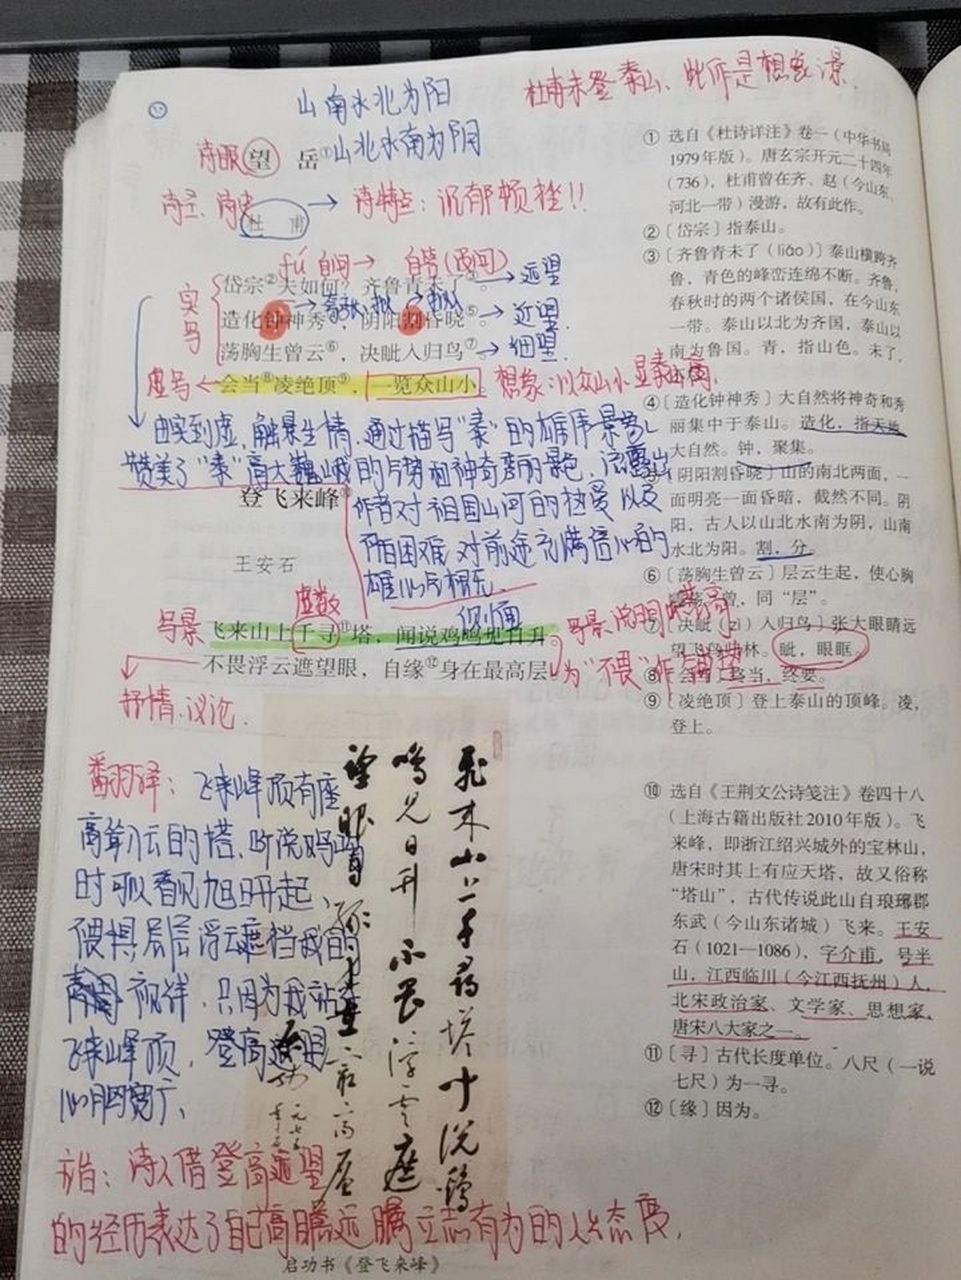 山南水北为阳
杜甫未登泰山、此作是想象之景
诗眼 望 岳①山北水南为阴
诗圣、诗史 → 诗特点：沉郁顿挫!!
杜 甫
fú 自问→ 自答(西河)
岱宗②夫如何？齐鲁青未了③。→远望
实写
造化钟神秀④，阴阳割昏晓⑤。→近望
荡胸生曾云⑥，决眦入归鸟⑦。→细望
虚写←会当⑧凌绝顶⑨，一览众山小。想象:以众山小显泰山高
由实到虚，触景生情，通过描写“泰”的雄伟景象
赞美了“泰”高大巍峨的气势和神奇秀丽的景色，流露出
登飞来峰⑩
作者对祖国山河的热爱以及
不怕困难，对前途充满信心的
雄心与
王安石
虚数
侧面
写景 飞来山上千寻⑪塔，闻说鸡鸣见日升。
不畏浮云遮望眼，自缘⑫身在最高层。为“不畏”作铺垫
抒情、议论
翻译：飞来峰顶有座
高耸入云的塔，听说鸡鸣
时可以看见旭日升起，
畏惧层层浮云遮挡我的
视线，只因为我站在
飞来峰顶，登高远眺
心胸宽广、
主旨：诗人借登高远望
的经历表达了自己高瞻远瞩立志有为的人生态度，
飞来山上千寻塔 闻说鸡
鸣见日升 不畏浮云遮
望眼 自缘身在最高层
启功书《登飞来峰》
① 选自《杜诗详注》卷一（中华书局
1979年版）。唐玄宗开元二十四年
（736），杜甫曾在齐、赵（今山东、
河北一带）漫游，故有此作。
②〔岱宗〕指泰山。
③〔齐鲁青未了（liǎo）〕泰山横跨齐
鲁，青色的峰峦连绵不断。齐鲁，
春秋时的两个诸侯国，在今山东
一带。泰山以北为齐国，泰山以
南为鲁国。青，指山色。未了，
④〔造化钟神秀〕大自然将神奇和秀
丽集中于泰山。造化，指天地
大自然。钟，聚集。
阴阳割昏晓〕山的南北两面，一
面明亮一面昏暗，截然不同。阴
阳，古人以山北水南为阴，山南
水北为阳。割，分。
⑥〔荡胸生曾云〕层云生起，使心胸
曾，同“层”。
⑦〔决眦（zì）入归鸟〕张大眼睛远
望飞鸟归林。眦，眼眶。
⑧〔会当〕终当，终要。
⑨〔凌绝顶〕登上泰山的顶峰。凌，
登上。
⑩ 选自《王荆文公诗笺注》卷四十八
（上海古籍出版社2010年版）。飞
来峰，即浙江绍兴城外的宝林山，
唐宋时其上有应天塔，故又俗称
“塔山”，古代传说此山自琅琊郡
东武（今山东诸城）飞来。王安
石（1021—1086），字介甫，号半
山，江西临川（今江西抚州）人，
北宋政治家、文学家、思想家，
唐宋八大家之一。
⑪〔寻〕古代长度单位。八尺（一说
七尺）为一寻。
⑫〔缘〕因为。